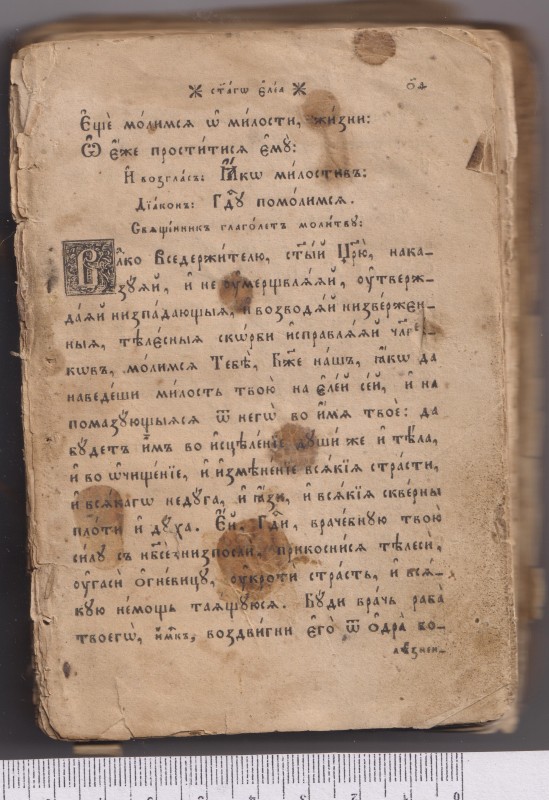 ✻ ст҃а́гѡ є҆лі́а ✻ о҃д
Є҆щѐ мо́лимсѧ ѡ҆ ми́лости, жи́зни:
Ѽ є҆́же прости́тисѧ є҆мꙋ̀:
И҆ возгла́съ: Ꙗ҆́кѡ ми́лостивъ:
Дїа́конъ: Гдⷭ҇ꙋ помо́лимсѧ.
Свѧще́нникъ глаго́летъ моли́твꙋ:
Влⷣко Вседержи́телю, ст҃ы́й Цр҃ю̀, нака-
зꙋ́ѧй, и҆ не ᲂу҆мерщвлѧ́ѧй, ᲂу҆твержда́-
да́ѧй низпа́дающыѧ, и҆ возводѧ́й низве́ржен-
ныѧ, тѣлє́сныѧ скѡ́рби и҆справлѧ́ѧй чл҃вѣ-
кѡвъ, мо́лимсѧ Тебѣ̀, Бж҃е на́шъ, ꙗ҆́кѡ да
наведе́ши ми́лость твою̀ на є҆ле́й се́й, и҆ на
помазꙋ́ющыѧсѧ ѿ негѡ̀ во и҆́мѧ твоѐ: да
бꙋ́детъ и҆̀мъ во и҆сцѣле́нїе дꙋши́ же и҆ тѣ́ла,
и҆ во ѡ҆чище́нїе, и҆ и҆змѣне́нїе всѧ́кїѧ стра́сти,
и҆ всѧ́кагѡ недꙋ́га, и҆ ꙗ҆́зи, и҆ всѧ́кїѧ скве́рны
пло́ти и҆ дꙋ́ха. Є҆́й, Гдⷭ҇и, враче́бнꙋю твою̀
си́лꙋ съ нб҃сѐ низпослѝ, прикосни́сѧ тѣлесѝ,
ᲂу҆гасѝ ѻ҆гне́вицꙋ, ᲂу҆кротѝ стра́сть, и҆ всѧ́-
кꙋю не́мощь таѧ́щꙋюсѧ. Бꙋ́ди вра́чь раба̀
твоегѡ̀, и҆́м҃къ, воздви́гни є҆го̀ ѿ ѻ҆дра̀ бо-
лѣзнен-